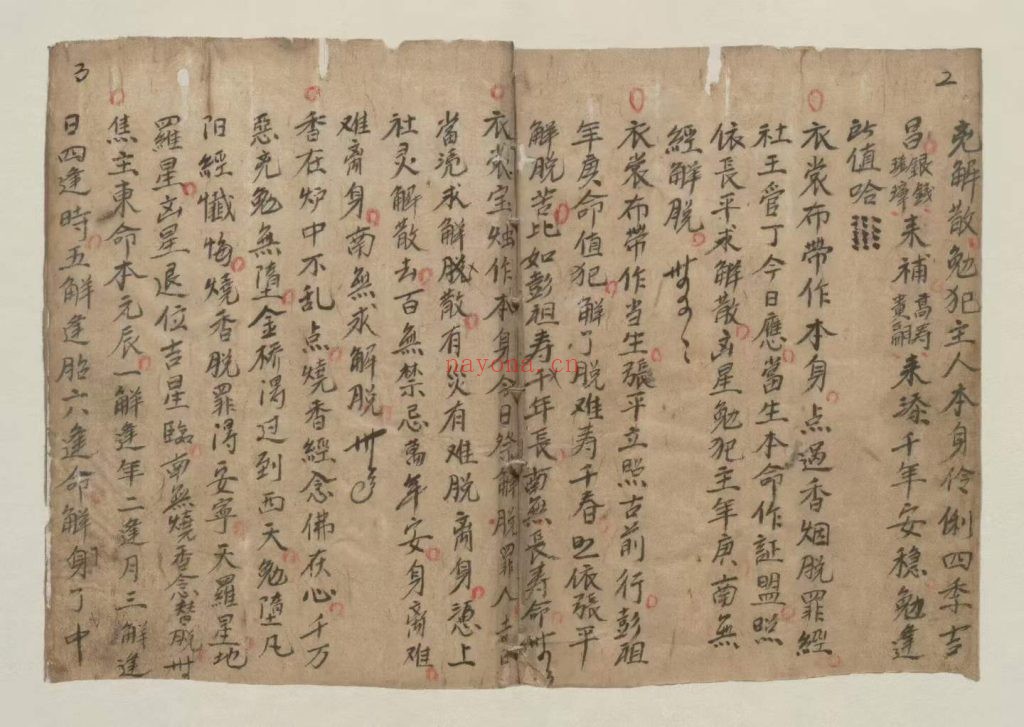 2
免解散勉犯主人本身伶俐四季吉
昌銀錢珠璋来補高哥貴嗣来添千年安穏勉逢
所值哈
衣裳布帶作本身点過香烟脱罪經
社王管丁今日應當生本命作証盟照
依長平求解散凶星勉犯主年庚南無
經解脱
衣裳布帶作当生張平立照古前行彭祖
年庚命值犯解了脱难寿千春照依張平
解脱苦比如彭祖寿千年長南無長寿命
衣裳宝烛作本身今日祭解脱罪人吉日
當洈求解脱散有災有难脱离身憑上
社灵解散去百無禁忌萬年安身离难
难离身南無求解脱
香在炉中不乱点燒香經念佛在心千万
惡充勉無墮金桥渴过到西天勉墮凡
阳經懺悔燒香脱罪得安寧天羅星地
羅星凶星退位吉星臨南無燒香念替脱
焦主東命本元辰一解逢年二逢月三解逢
日四逢時五解逢胎六逢命解身了中
3
nayona.cn